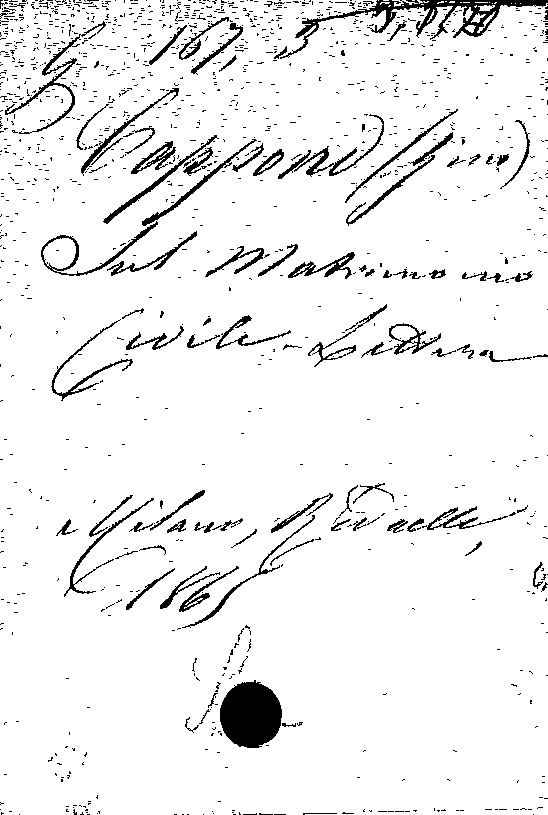 G. 167, 3.
Capponi (Gino)
Sul Matrimonio
Civile - Lettera
Milano, Redaelli,
1865